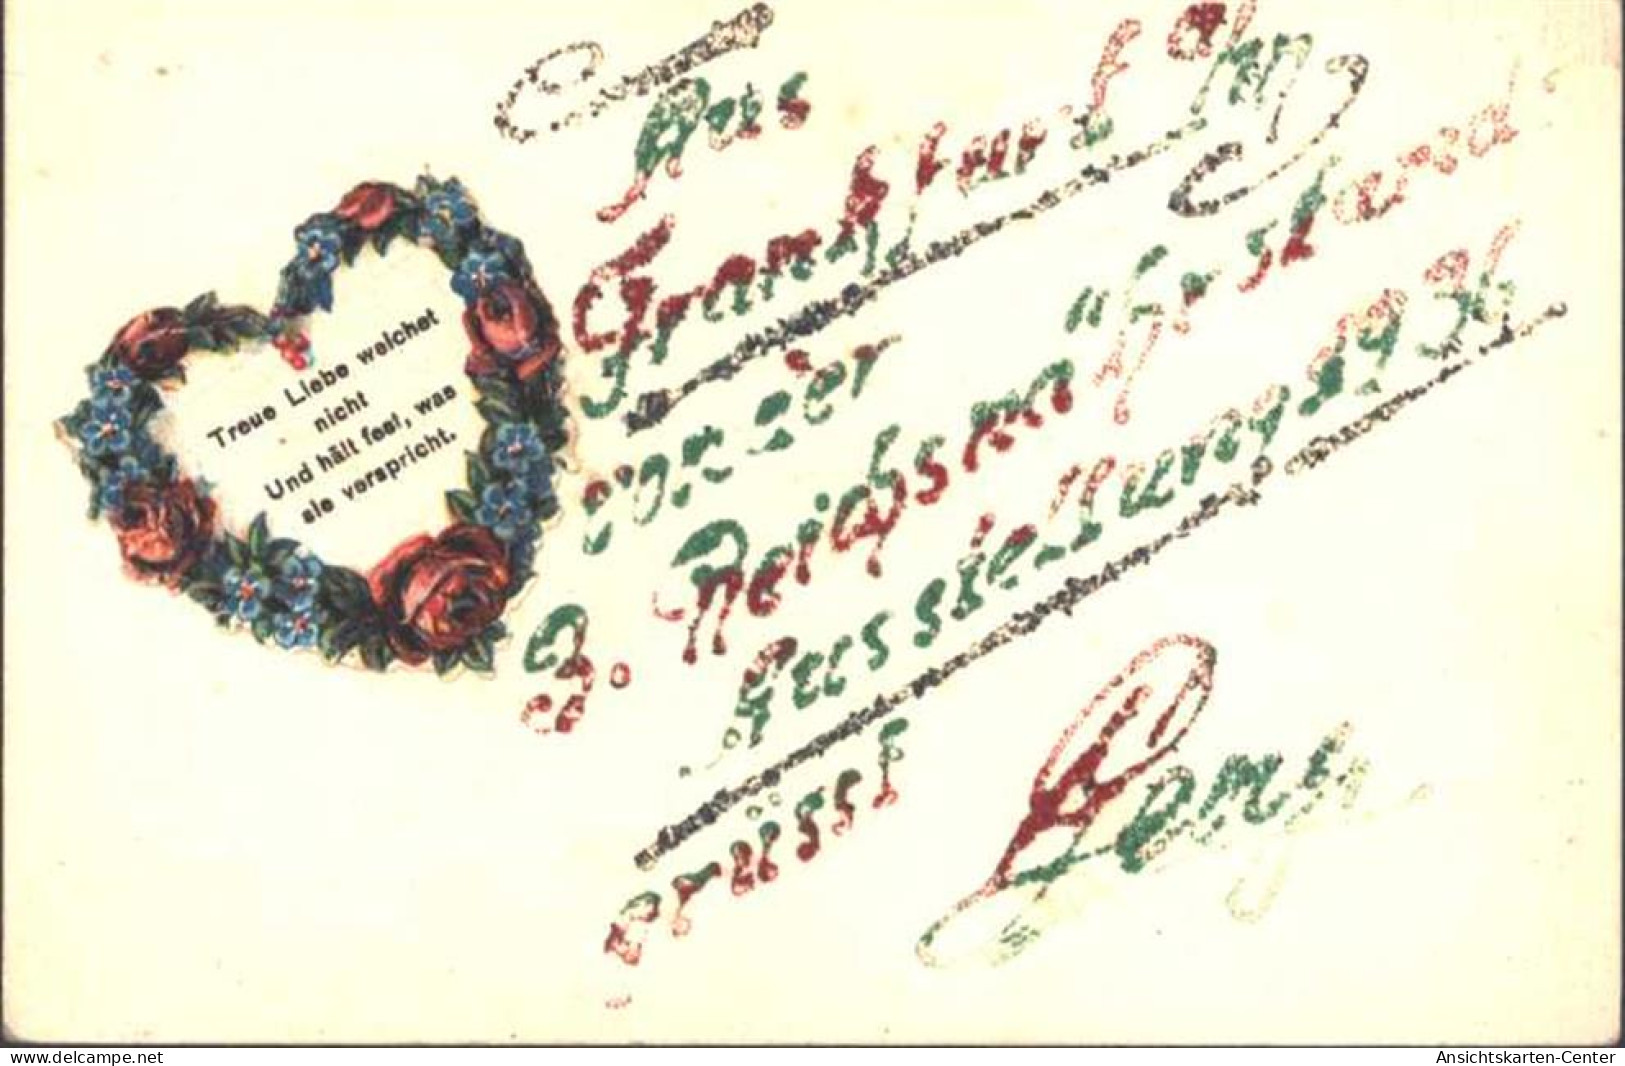 Treue Liebe weichet
nicht
Und hält fest, was
sie verspricht.
Aus
Frankfurt a/M
von der
3. Reichsnährstand
Ausstellung 1936
grüsst
www.delcampe.net
Ansichtskarten-Center